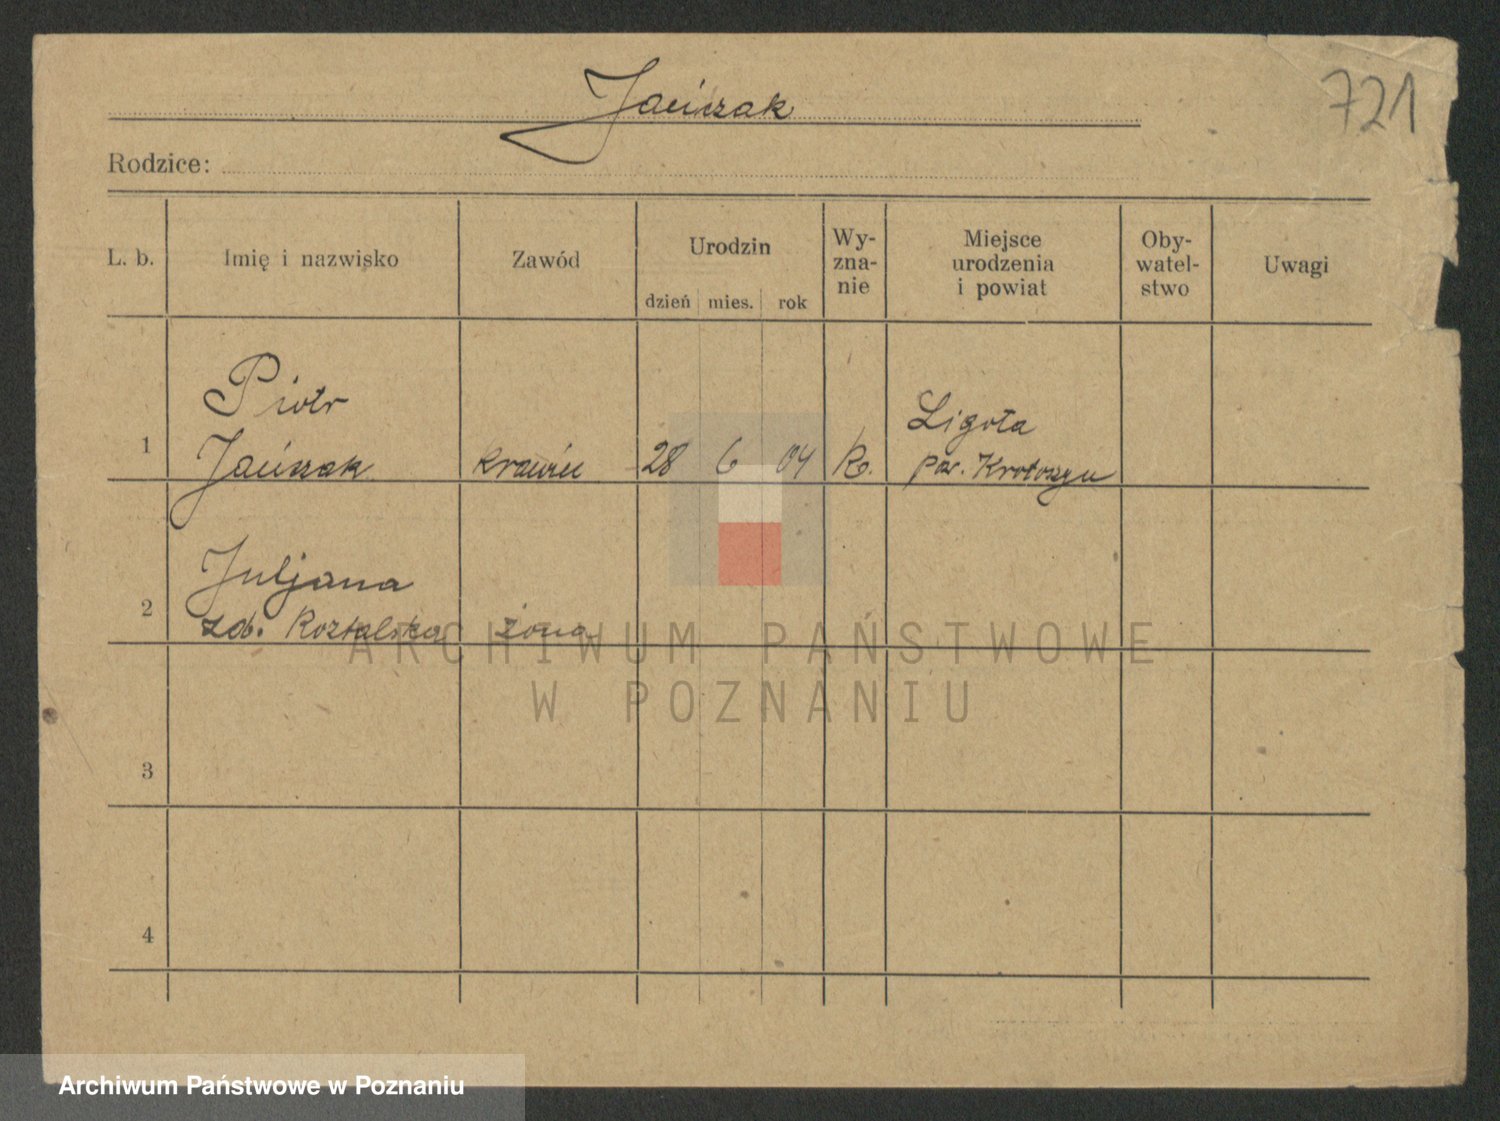 721
Jańczak
Rodzice:
L. b.
Imię i nazwisko
Zawód
Urodzin
dzień mies. rok
Wy-
zna-
nie
Miejsce
urodzenia
i powiat
Oby-
watel-
stwo
Uwagi
1
Piotr
Jańczak
krawiec
28 6 04
k.
Ligota
pow. Krotoszyn
2
Juljana
żona
3
4
ARCHIWUM PAŃSTWOWE
W POZNANIU
Archiwum Państwowe w Poznaniu